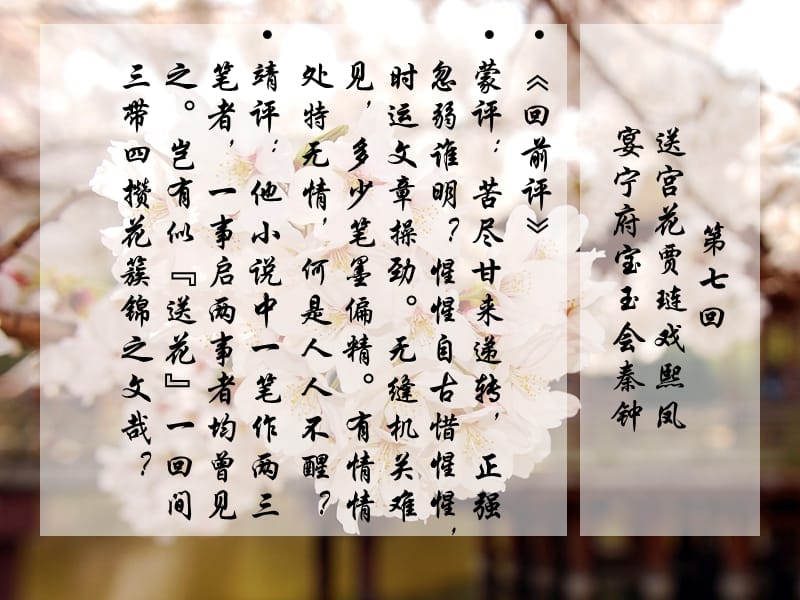 第七回
送宫花贾琏戏熙凤
宴宁府宝玉会秦钟
• 《回前评》
• 蒙评：苦尽甘来递转，正强
忽弱谁明？惺惺自古惜惺惺，
时运文章操劲。无缝机关难
见，多少笔墨偏精。有情情
处特无情，何是人人不醒？
• 靖评：他小说中一笔作两三
笔者，一事启两事者均曾见
之。岂有似『送花』一回间
三带四攒花簇锦之文哉？